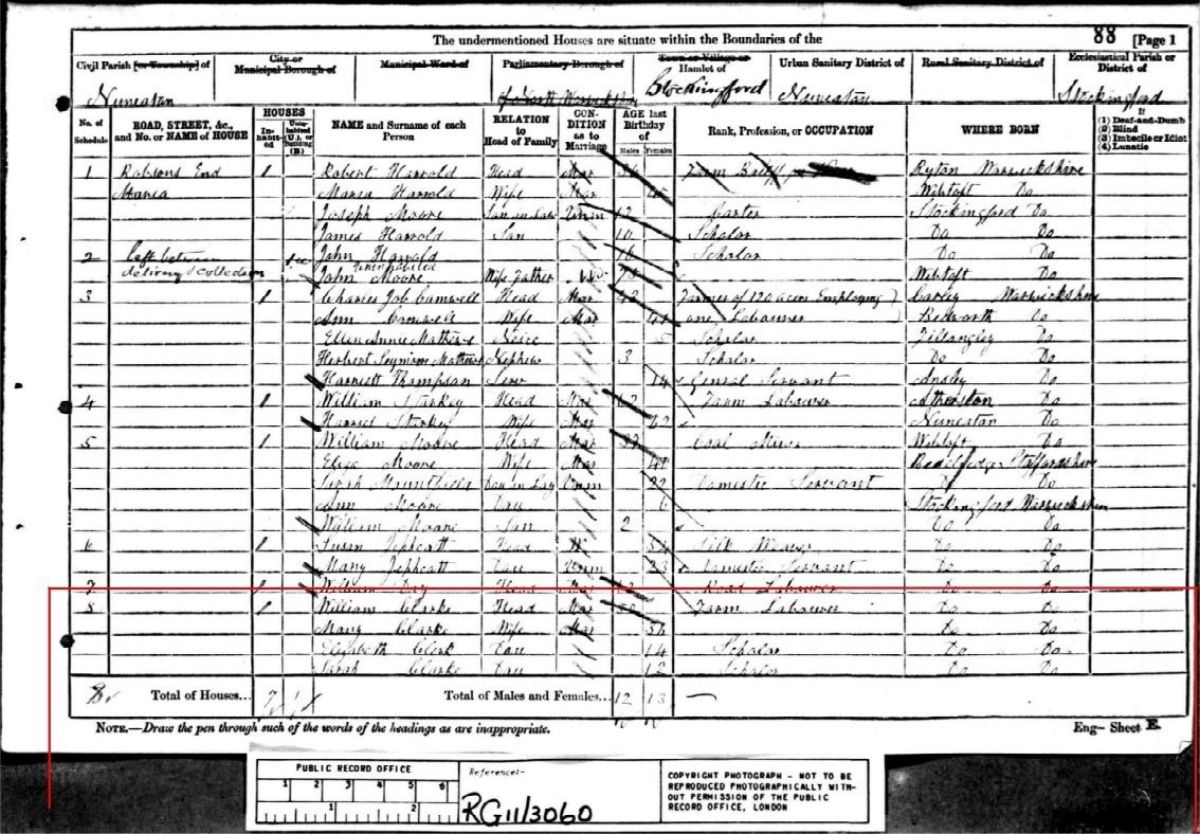 The undermentioned Houses are situate within the Boundaries of the
88 [Page 1
Civil Parish [or Township] of
City or Municipal Borough of
Municipal Ward of
Parliamentary Borough of
Town or Village or Hamlet of
Urban Sanitary District of
Rural Sanitary District of
Ecclesiastical Parish or District of
Nuneaton
Stockingford
Nuneaton
Stockingford
No. of Schedule
ROAD, STREET, &c., and No. or NAME of HOUSE
HOUSES
Inhabited
Uninhabited (U.), or Building (B.)
NAME and Surname of each Person
RELATION to Head of Family
CONDITION as to Marriage
AGE last Birthday of
Males Females
Rank, Profession, or OCCUPATION
WHERE BORN
If
(1) Deaf-and-Dumb
(2) Blind
(3) Imbecile or Idiot
(4) Lunatic
1 Robsons End 1 Robert Harrold Head Mar Farm Ryton Warwickshire
Maria Harrold Wife Mar Wibtoft Do
Joseph Moore Son in Law Unm Carter Stockingford Do
James Harrold Son 10 Scholar Do Do
2 left between 1u John Harrold Scholar Do Do
delivery & collection uninhabited
John Moore Wife Father Wibtoft Do
3 1 Charles Job Camwell Head Mar Farmer of 120 acres Employing Corley Warwickshire
Ann Camwell Wife Mar one Labourer Bedworth Do
Ellen Annie Mathews Neice 5 Scholar Fillongley Do
Herbert Seymour Mathews Nephew 3 Scholar Do Do
Harriett Thompson Serv 14 General Servant Ansley Do
4 1 William Starkey Head Mar Farm Labourer Atherston Do
Harriet Starkey Wife Mar 62 Nuneaton Do
5 1 William Moore Head Mar Coal Miner Wibtoft Do
Eliza Moore Wife Mar Staffordshire
Sarah Dau in Law Unm 22 Domestic Servant Do Do
Ann Moore Dau 6 Stockingford Warwickshire
William Moore Son 2 Do Do
6 1 Susan Jephcott Head W 54 Silk Weaver Do Do
Mary Jephcott Dau Unm 23 Domestic Servant Do Do
7 1 William Head Mar Road Labourer Do Do
8 1 William Clarke Head Mar Farm Labourer Do Do
Mary Clarke Wife Mar 56 Do Do
Elizabeth Clark Dau 14 Scholar Do Do
Sarah Clarke Dau 12 Scholar Do Do
8 Total of Houses... 7 1 Total of Males and Females... 12 13
NOTE.—Draw the pen through such of the words of the headings as are inappropriate.
Eng- Sheet E.
PUBLIC RECORD OFFICE
1 2 3 4 5 6
1 2
Reference:-
RG11/3060
COPYRIGHT PHOTOGRAPH - NOT TO BE
REPRODUCED PHOTOGRAPHICALLY WITH-
OUT PERMISSION OF THE PUBLIC
RECORD OFFICE, LONDON